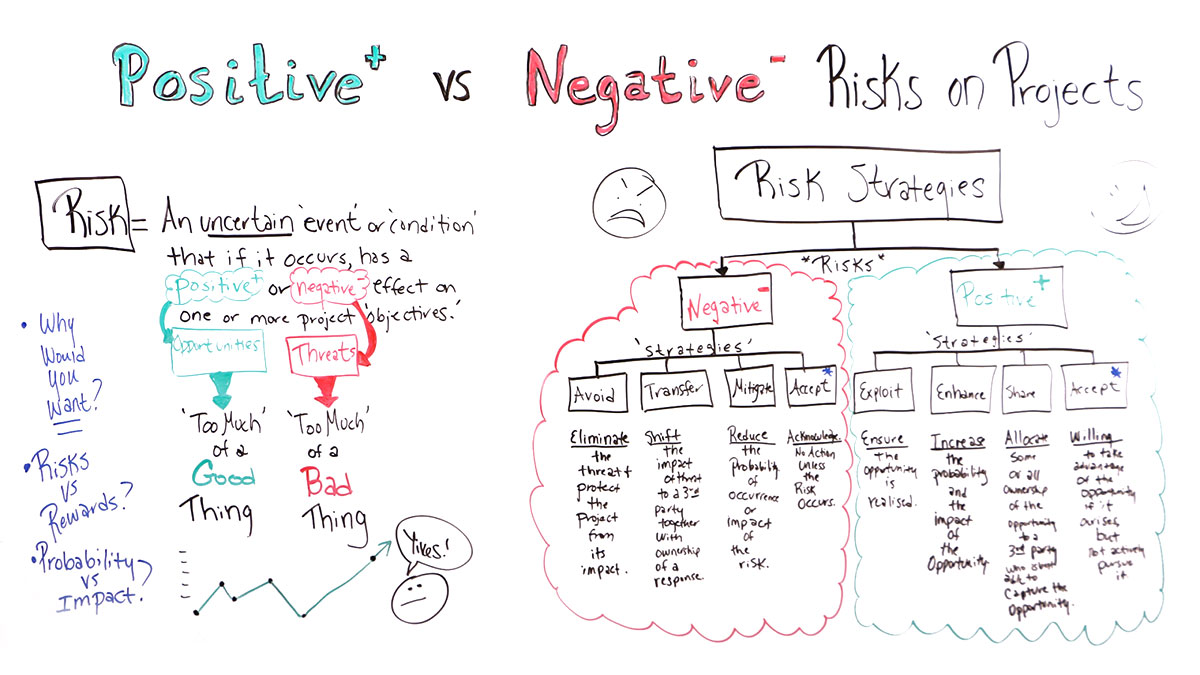 Positive+ vs Negative- Risks on Projects
Risk = An uncertain 'event' or 'condition'
that if it occurs, has a
positive+ or negative- effect on
one or more project 'objectives.'
Opportunities
Threats
'Too Much'
of a
Good
Thing
'Too Much'
of a
Bad
Thing
• Why
Would
you
Want?
• Risks
vs
Rewards?
• Probability
vs
Impact?
Yikes!
Risk Strategies
*Risks*
Negative-
'Strategies'
Avoid
Eliminate
the
threat &
protect
the
Project
from
its
impact.
Transfer
Shift
the
impact
of threat
to a 3rd
party
together
with
ownership
of a
response.
Mitigate
Reduce
the
Probability
of
occurrence
or
impact
of
the
risk.
Accept*
Acknowledge.
No Action
unless
the
Risk
Occurs.
Positive+
'Strategies'
Exploit
Ensure
the
opportunity
is
realised.
Enhance
Increase
the
probability
and
the
impact
of
the
Opportunity
Share
Allocate
Some
or all
ownership
of the
opportunity
to a
3rd party
who is best
able to
Capture the
Opportunity.
Accept*
Willing
to take
advantage
of the
opportunity
if it
arises,
but
not actively
pursue
it